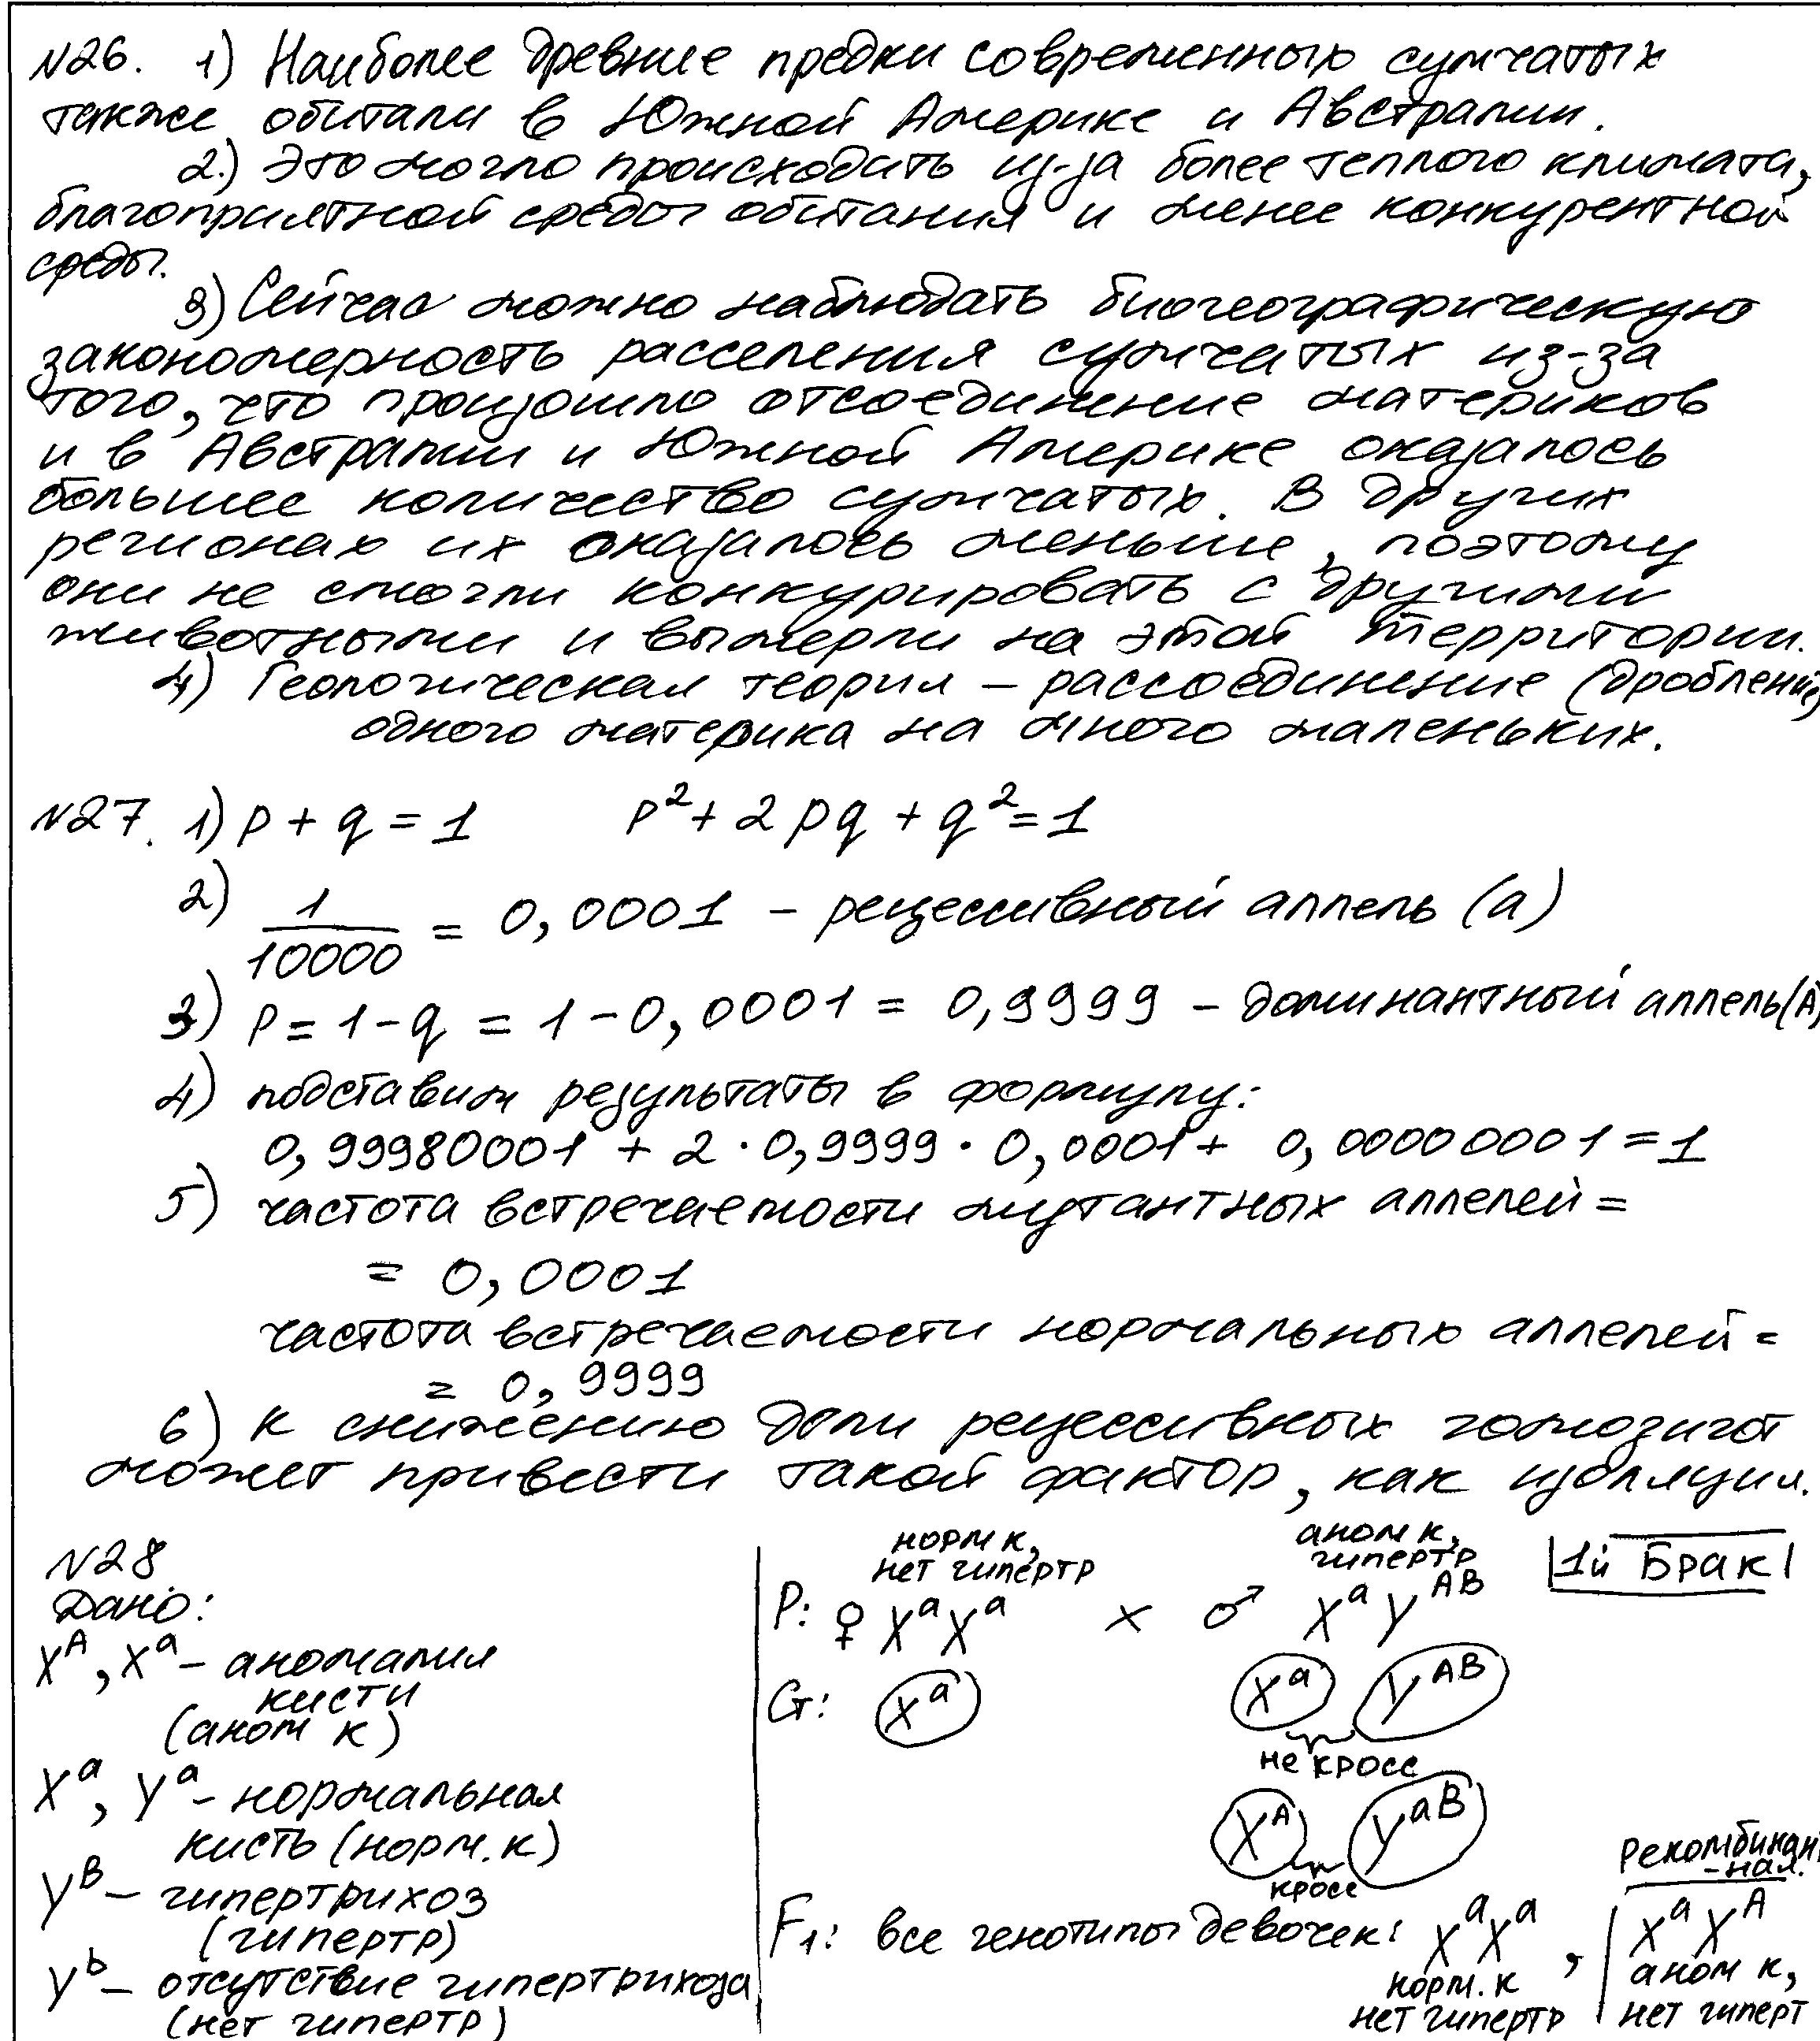 №26. 1) Наиболее древние предки современных сумчатых
также обитали в Южной Америке и Австралии.
2.) Это могло происходить из-за более теплого климата,
благоприятной среды обитания и менее конкурентной
среды.
3) Сейчас можно наблюдать биогеографическую
закономерность расселения сумчатых из-за
того, что произошло отсоединение материков
и в Австралии и Южной Америке оказалось
большее количество сумчатых. В других
регионах их оказалось меньше, поэтому
они не смогли конкурировать с другими
животными и вымерли на этой территории.
4) Геологическая теория – рассоединение (дробление)
одного материка на много маленьких.
№27. 1) p + q = 1 p² + 2pq + q² = 1
2) 1/10000 = 0,0001 – рецессивный аллель (a)
3) p = 1 - q = 1 - 0,0001 = 0,9999 – доминантный аллель (A)
4) подставим результаты в формулу:
0,99980001 + 2 · 0,9999 · 0,0001 + 0,00000001 = 1
5) частота встречаемости мутантных аллелей =
= 0,0001
частота встречаемости нормальных аллелей =
= 0,9999
6) К снижению доли рецессивных гомозигот
может привести такой фактор, как изоляция.
№28
Дано:
X^A, X^a – аномалия
кисти
(аном к)
X^a, Y^a – нормальная
кисть (норм. к)
Y^B – гипертрихоз
(гипертр)
Y^b – отсутствие гипертрихоза
(нет гипертр)
1й Брак
норм к, аном к,
нет гипертр гипертр
P: ♀ X^a X^a × ♂ X^a Y^AB
G: X^a X^a Y^AB
не кросс
X^A Y^aB
кросс
Рекомбинант
-ная.
F₁: все генотипы девочек: X^a X^a, X^a X^A
норм. к аном к,
нет гипертр нет гиперт